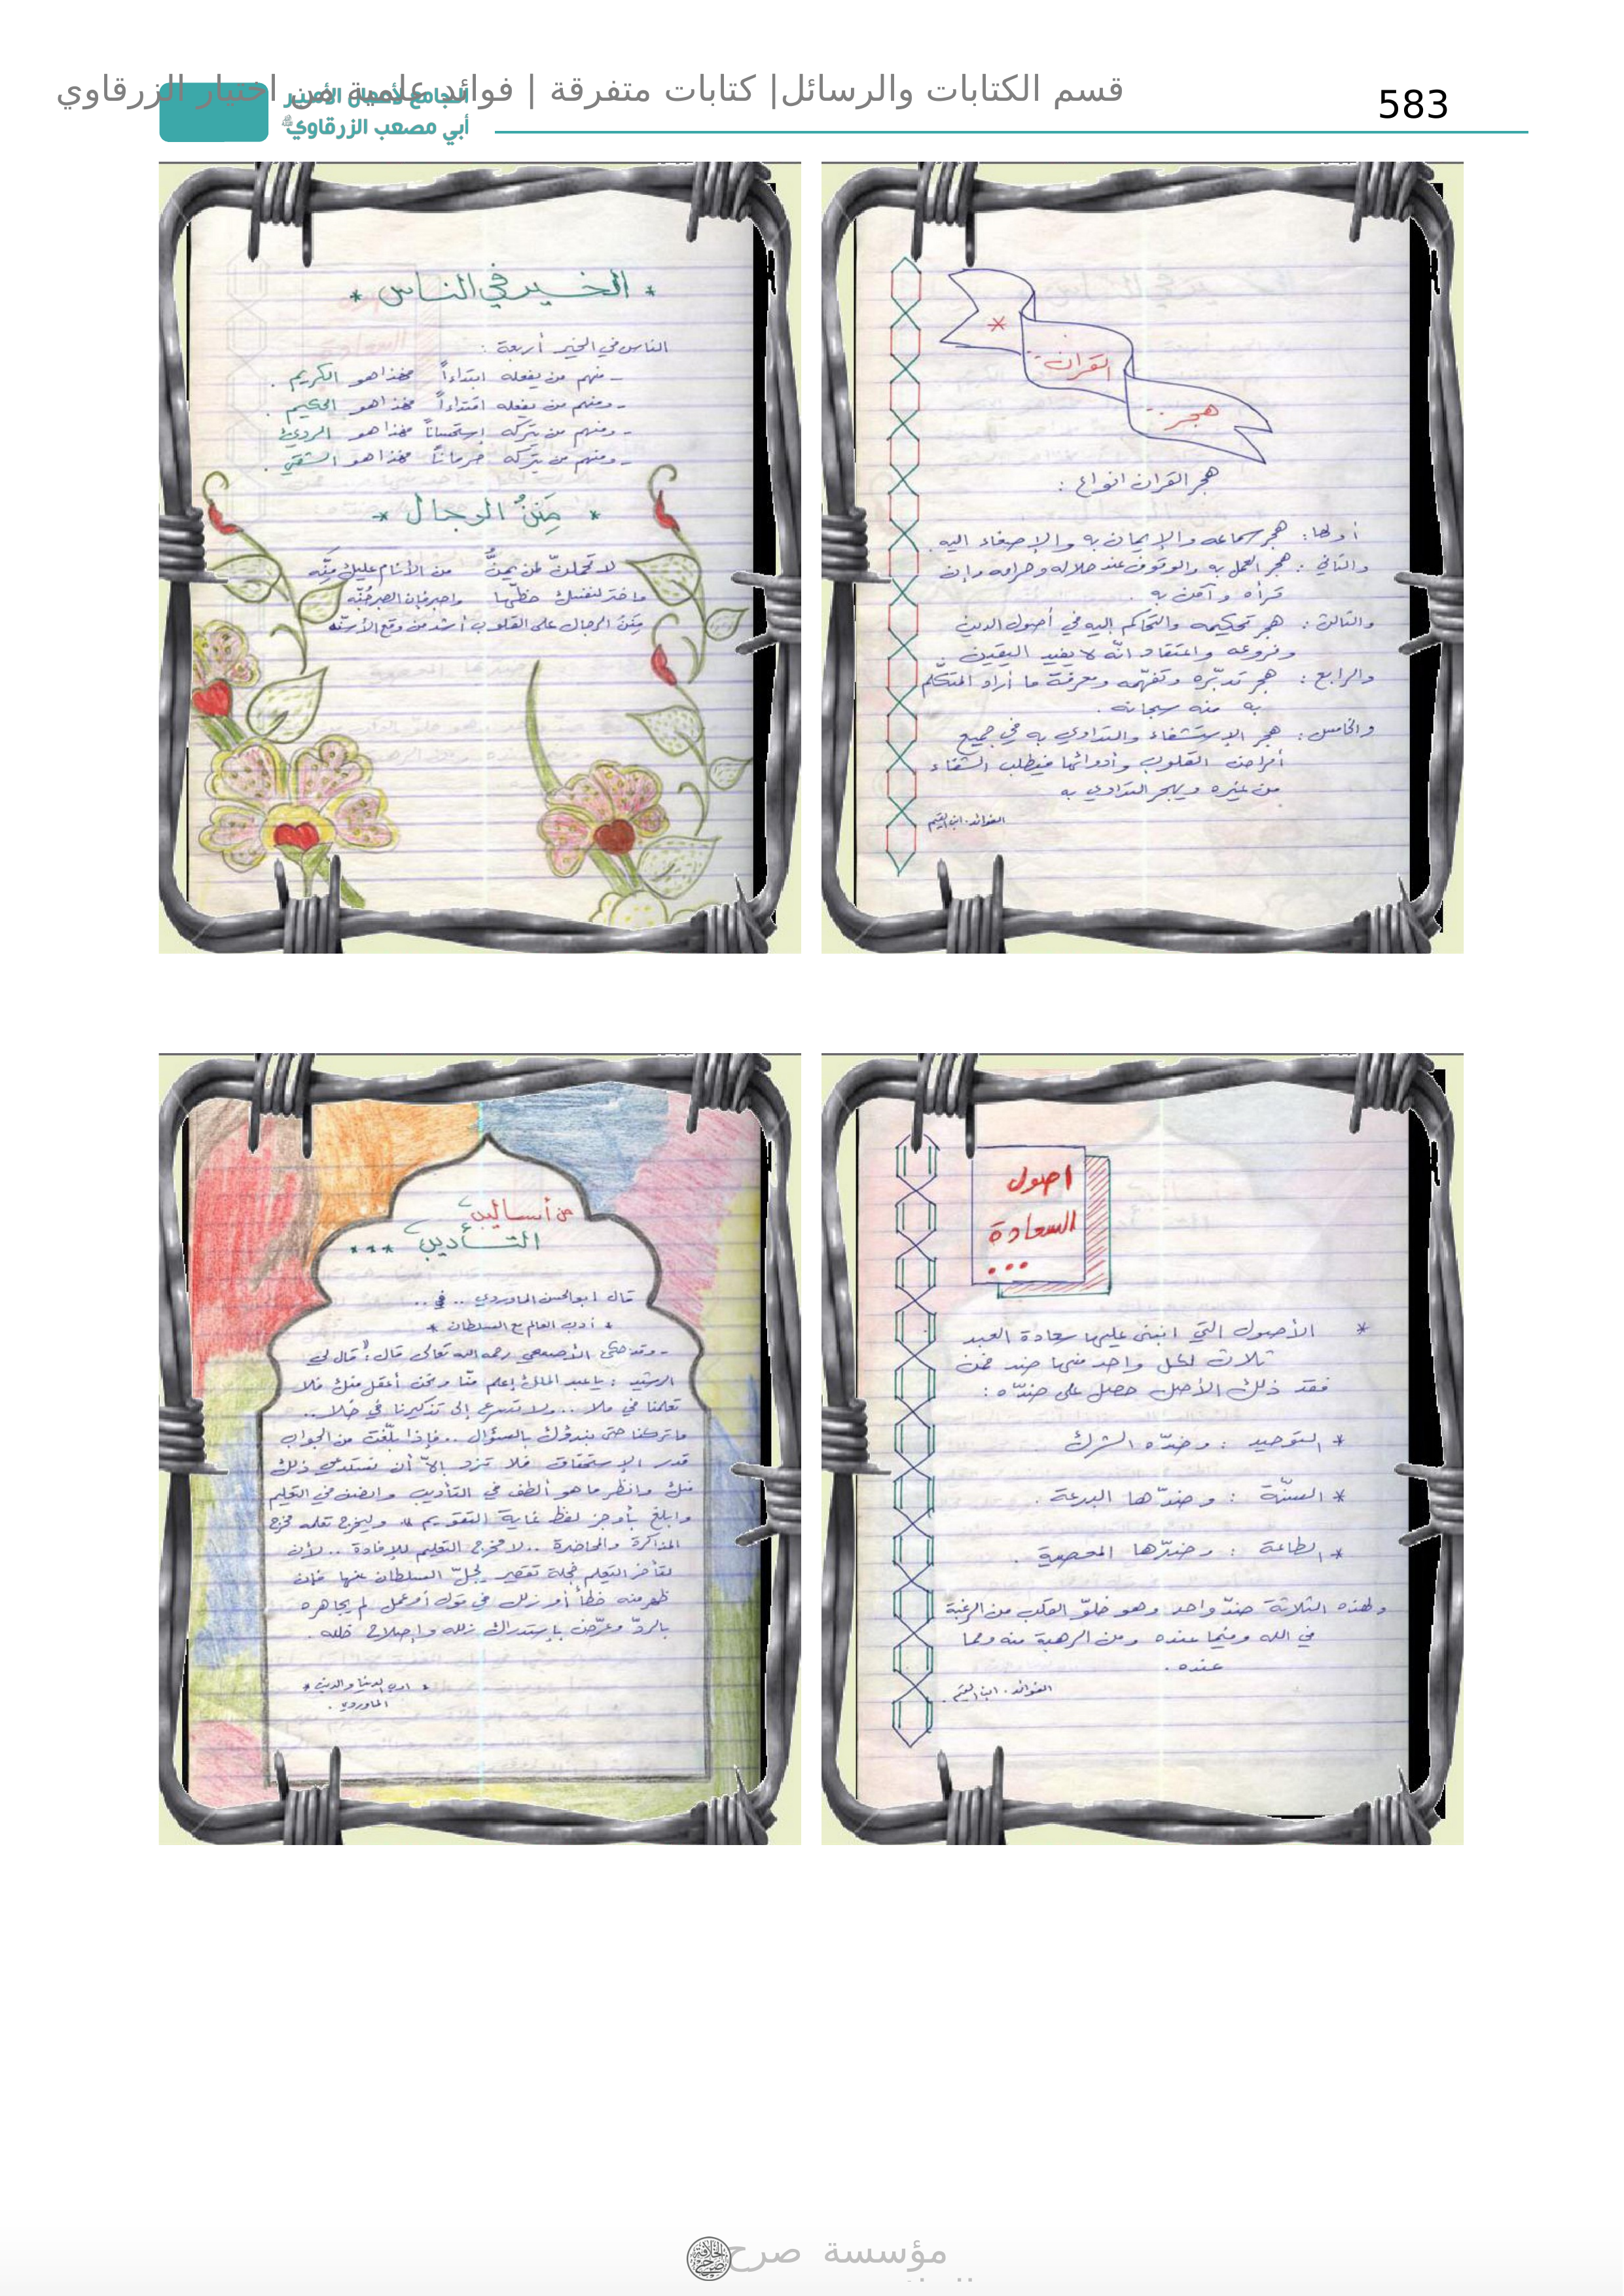 قسم الكتابات والرسائل| كتابات متفرقة | فوائد علمية من اختيار الزرقاوي
583
الجامع لأعمال الأمير
أبي مصعب الزرقاوي
هجر
القرآن
هجر القرآن انواع :
أولها : هجر سماعه والإيمان به والإصغاء اليه .
والثاني : هجر العمل به والوقوف عند حلاله وحرامه وإن
قرأه وآمن به .
والثالث : هجر تحكيمه والتحاكم اليه في أصول الدين
وفروعه واعتقاد انّه لا يفيد اليقين .
والرابع : هجر تدبّره وتفهّمه ومعرفة ما أراد المتكلّم
به منه سبحانه .
والخامس : هجر الإستشفاء والتداوي به في جميع
أمراض القلوب وأدوائها فيطلب الشفاء
من غيره ويهجر التداوي به
الفوائد . ابن القيم
* الخير في الناس *
الناس في الخير أربعة :
- منهم من يفعله ابتداءاً فهذا هو الكريم .
- ومنهم من يفعله اقتداءاً فهذا هو الحكيم .
- ومنهم من يتركه إستحساناً فهذا هو الرديئ
- ومنهم من يتركه حرماناً فهذا هو الشقي .
* مِنَنُ الرجال *
لا تحملنّ لمن يمنُّ من الأنام عليك منّه
واختر لنفسك حظّها واصبر فإن الصبر جُنّه
مِننُ الرجال على القلوب أشد من وقع الأسنّه
اصول
السعادة
...
* الأصول التي انبنى عليها سعادة العبد
ثلاث لكل واحد منها ضد فمن
فقد ذلك الأصل حصل على ضدّه :
* التوحيد : وضدّه الشرك
* السنّة : وضدّها البدعة .
* الطاعة : وضدّها المعصية .
ولهذه الثلاثة ضدّ واحد وهو خلوّ القلب من الرغبة
في الله وفيما عنده ومن الرهبة منه ومما
عنده .
الفوائد . ابن القيم .
من أساليب
التأديب ***
قال ابوالحسن الماوردي .. في ..
* أدب العالم مع السلطان *
- وقد حكى الأصمعي رحمه الله تعالى قال : " قال لي
الرشيد : يا عبد الملك إعلم منّا ونحن أعقل منك فلا
تعلمنا في ملا .. ولا تسرع إلى تذكيرنا في خلا ..
واتركنا حتى نبدؤك بالسؤال .. فإذا بلّغت من الجواب
قدر الإستحقاق فلا تزد إلاّ أن نستدعي ذلك
منك وانظر ما هو ألطف في التأديب وانصف في التعليم
وابلغ بأوجز لفظ غاية التقويم " وليخرج تعلمه مخرج
المذاكرة والمحاضرة .. لا مخرج التعليم للإفادة .. لأن
لتأخر التعلم خجلة تقصير يجلّ السلطان عنها فإن
ظهر منه خطأ أو زلل في قول أو عمل لم يجاهره
بالردّ وعرّض بإستدراك زلله وإصلاح خلله .
* ادب الدنيا والدين *
الماوردي .
مؤسسة صرح